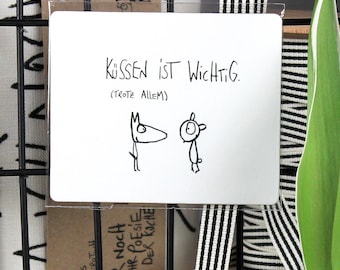 KÜSSEN IST WICHTIG.
(TROTZ ALLEM)
NOCH
POESIE
DER KÜCHE